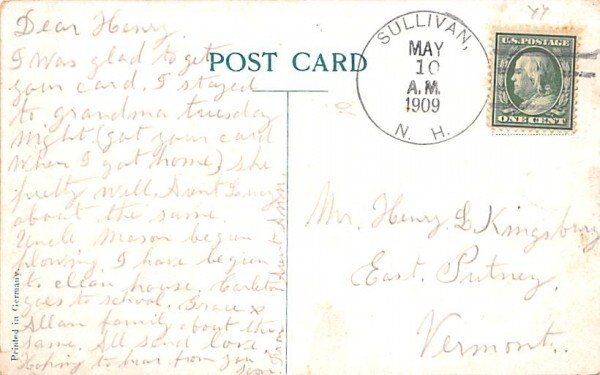 Dear Henry.
I was glad to get
your card. I stayed
to grandma tuesday
night. (got your card
when I got home) she
pretty well. Aunt Lucy
about the same.
Uncle Mason begun
plowing. I have begun
to clean house. Carleton
goes to school. Grace &
Allan family about the
same. All send love.
Hoping to hear from you
soon.
from Aunt
POST CARD
SULLIVAN,
MAY
10
A.M.
1909
N. H.
U.S. POSTAGE
ONE CENT
44
Mr. Henry L Kingsbury
East. Putney.
Vermont.
Printed in Germany.